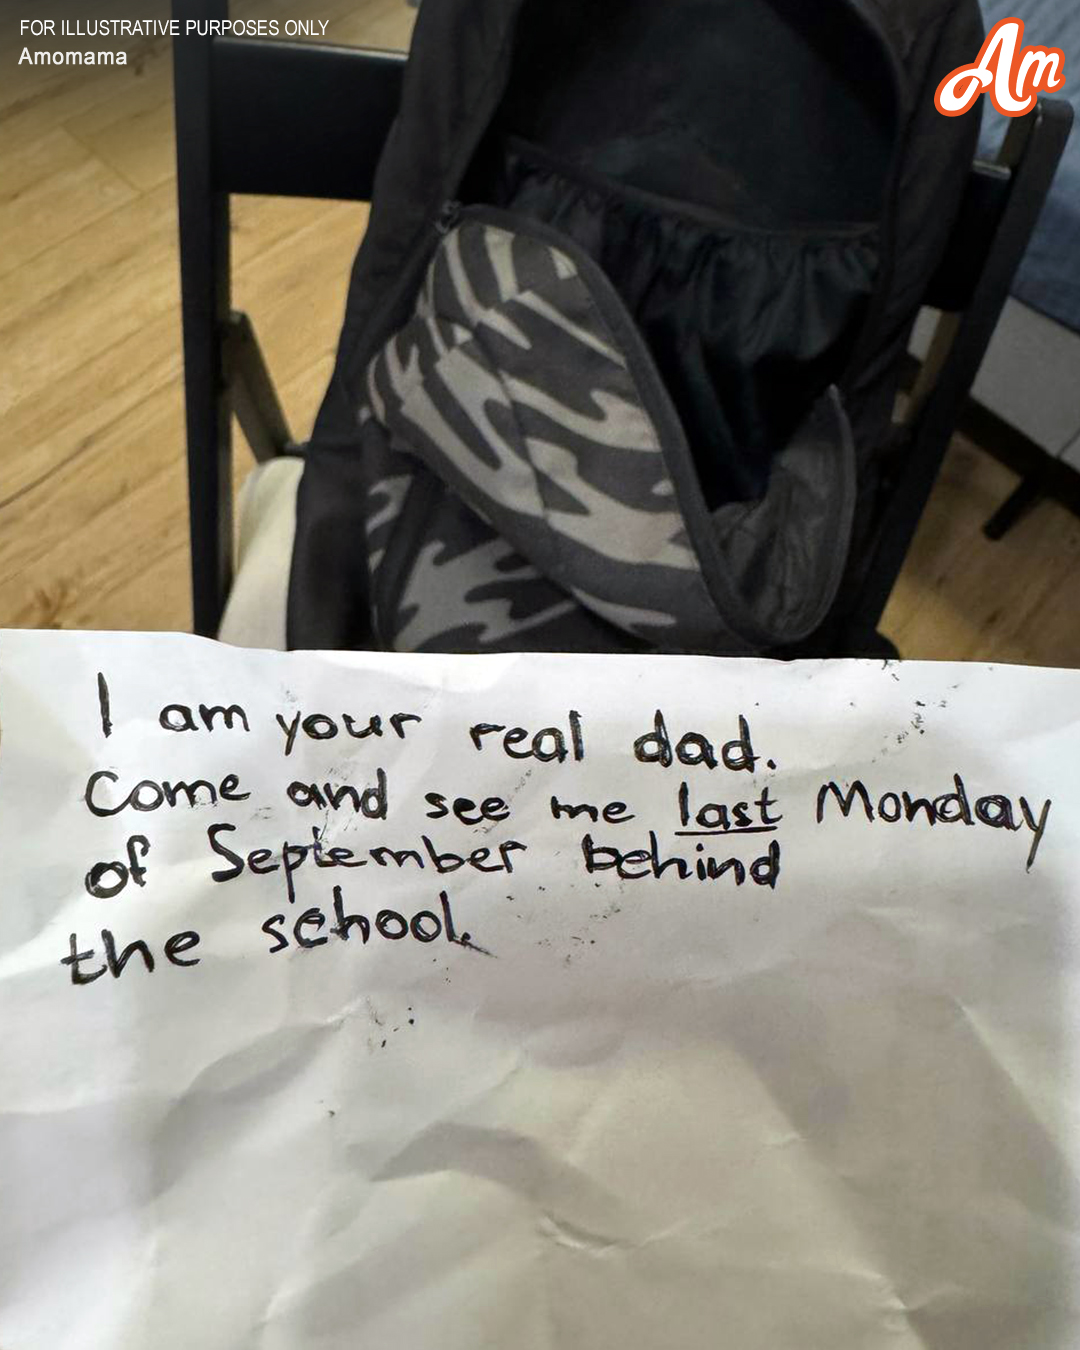 FOR ILLUSTRATIVE PURPOSES ONLY
Amomama
Am
I am your real dad.
Come and see me last Monday
of September behind
the school.